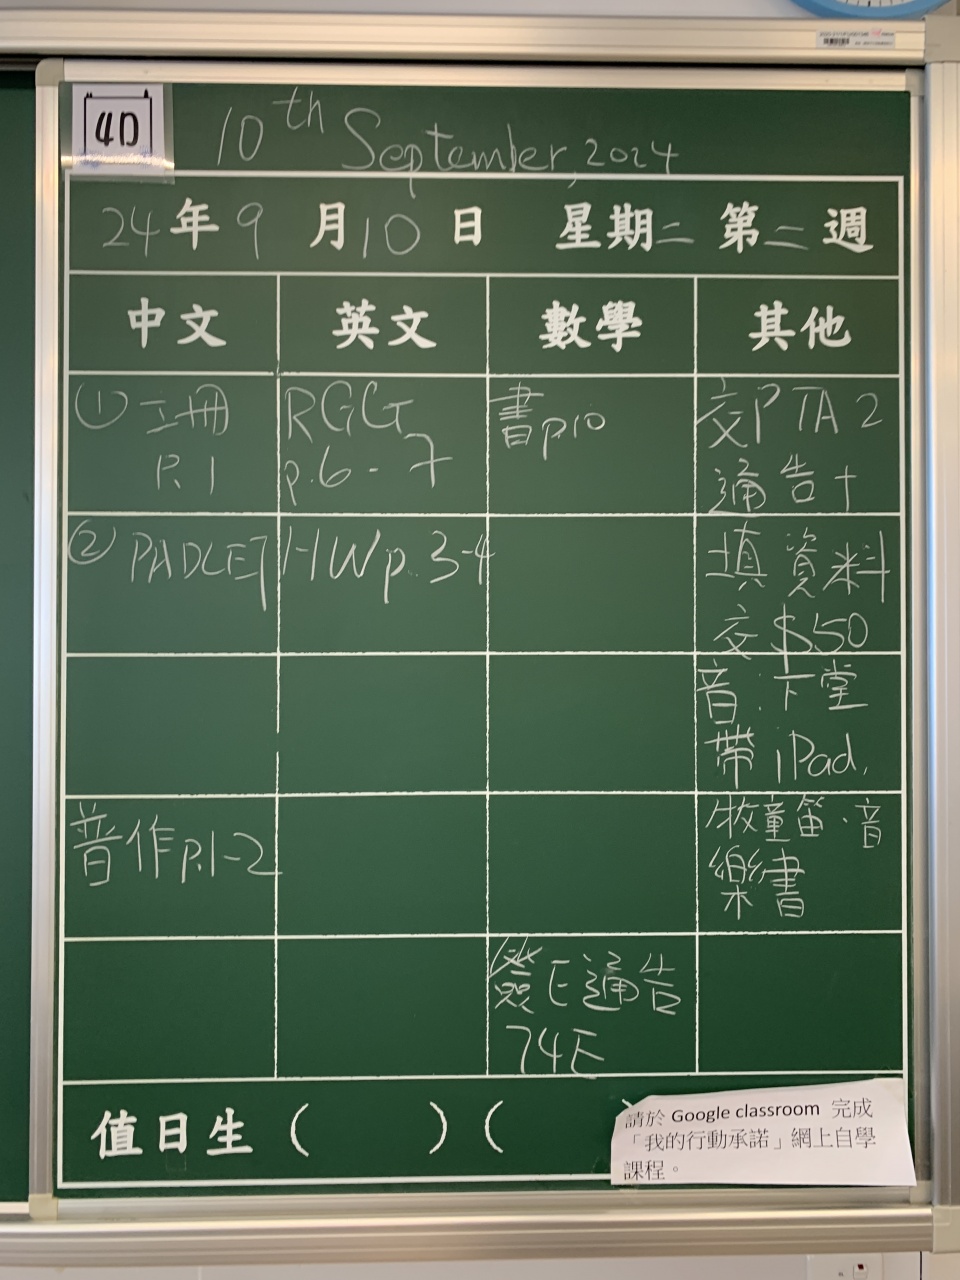 4D
10th September, 2024
24年9月10日 星期二 第二週
中文 英文 數學 其他
① 工冊
P.1
RGG
p.6-7
書p10
交PTA2
通告+
② PADLET
HWp.3-4
填資料
交$50
音:下堂
帶iPad,
普作p.1-2
牧童笛、音
樂書
簽E通告
74E
值日生( )(
請於 Google classroom 完成
「我的行動承諾」網上自學
課程。